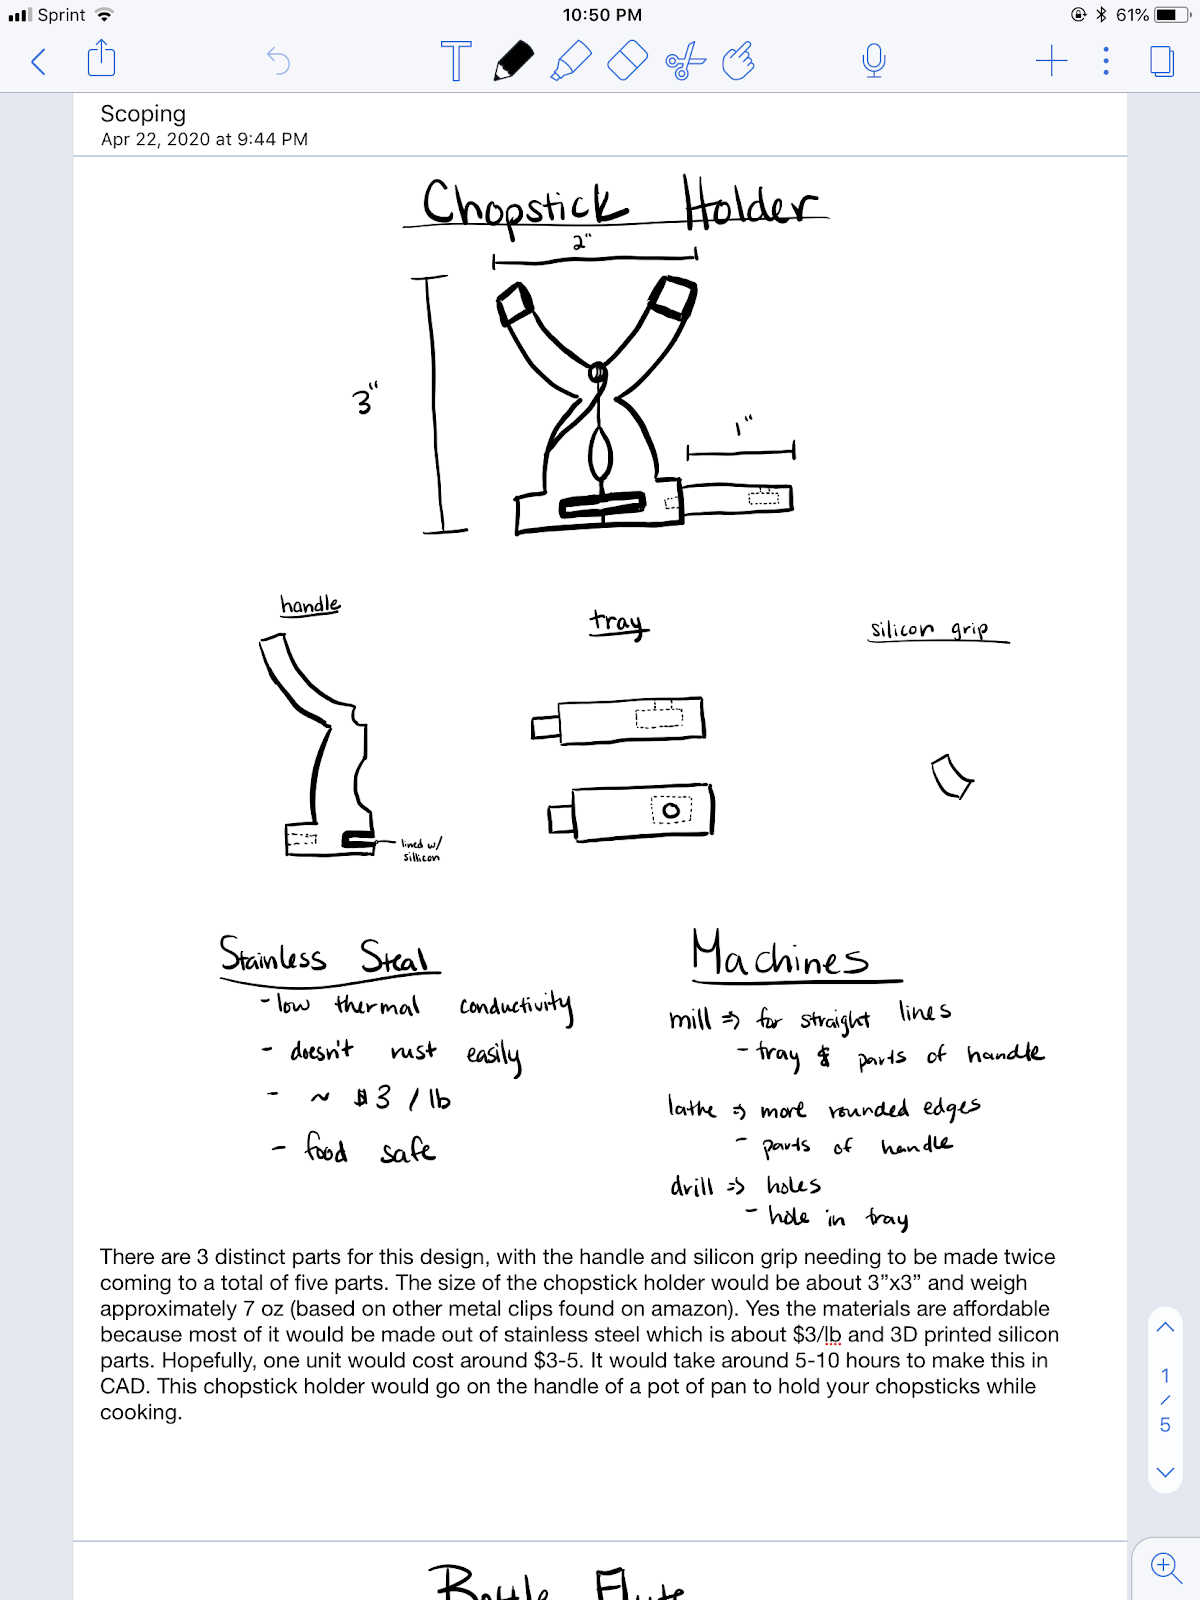 Sprint 10:50 PM 61%
T
Scoping
Apr 22, 2020 at 9:44 PM
Chopstick Holder
2"
3"
1"
handle
tray
silicon grip
lined w/
sillicon
Stainless Steal
- low thermal conductivity
- doesn't rust easily
- ~ $3 / lb
- food safe
Machines
mill => for straight lines
- tray & parts of handle
lathe => more rounded edges
- parts of handle
drill => holes
- hole in tray
There are 3 distinct parts for this design, with the handle and silicon grip needing to be made twice
coming to a total of five parts. The size of the chopstick holder would be about 3”x3” and weigh
approximately 7 oz (based on other metal clips found on amazon). Yes the materials are affordable
because most of it would be made out of stainless steel which is about $3/lb and 3D printed silicon
parts. Hopefully, one unit would cost around $3-5. It would take around 5-10 hours to make this in
CAD. This chopstick holder would go on the handle of a pot of pan to hold your chopsticks while
cooking.
1
/
5
Bottle Flute